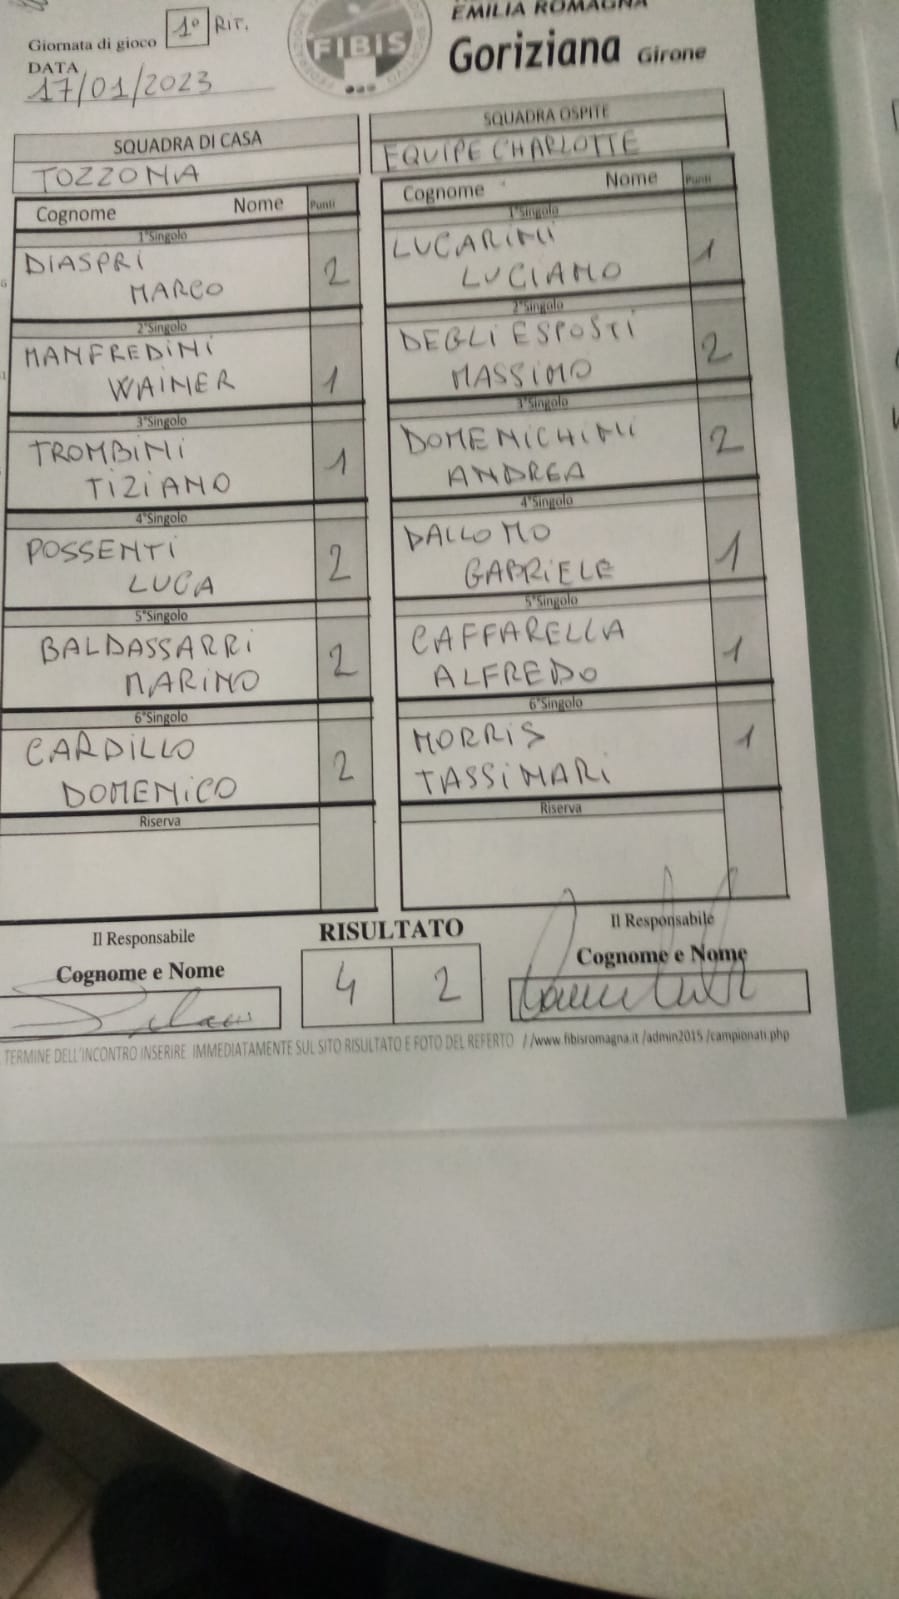 EMILIA ROMAGNA
Giornata di gioco 1° RIT.
FIBIS
Goriziana Girone
DATA
17/01/2023
SQUADRA DI CASA
SQUADRA OSPITE
TOZZONA
EQUIPE CHARLOTTE
Cognome Nome Punti
Cognome Nome Punti
1°Singolo
1°Singolo
DIASPRI
MARCO 2
LUCARINI
LUCIANO 1
2°Singolo
2°Singolo
MANFREDINI
WAINER 1
DEGLI ESPOSTI
MASSIMO 2
3°Singolo
3°Singolo
TROMBINI
TIZIANO 1
DOMENICHINI
ANDREA 2
4°Singolo
4°Singolo
POSSENTI
LUCA 2
DALLOMO
GABRIELE 1
5°Singolo
5°Singolo
BALDASSARRI
MARINO 2
CAFFARELLA
ALFREDO 1
6°Singolo
6°Singolo
CARDILLO
DOMENICO 2
MORRIS
TASSINARI 1
Riserva
Riserva
Il Responsabile
RISULTATO
Il Responsabile
Cognome e Nome
4 2
Cognome e Nome
TERMINE DELL'INCONTRO INSERIRE IMMEDIATAMENTE SUL SITO RISULTATO E FOTO DEL REFERTO //www.fibisromagna.it/admin2015/campionati.php